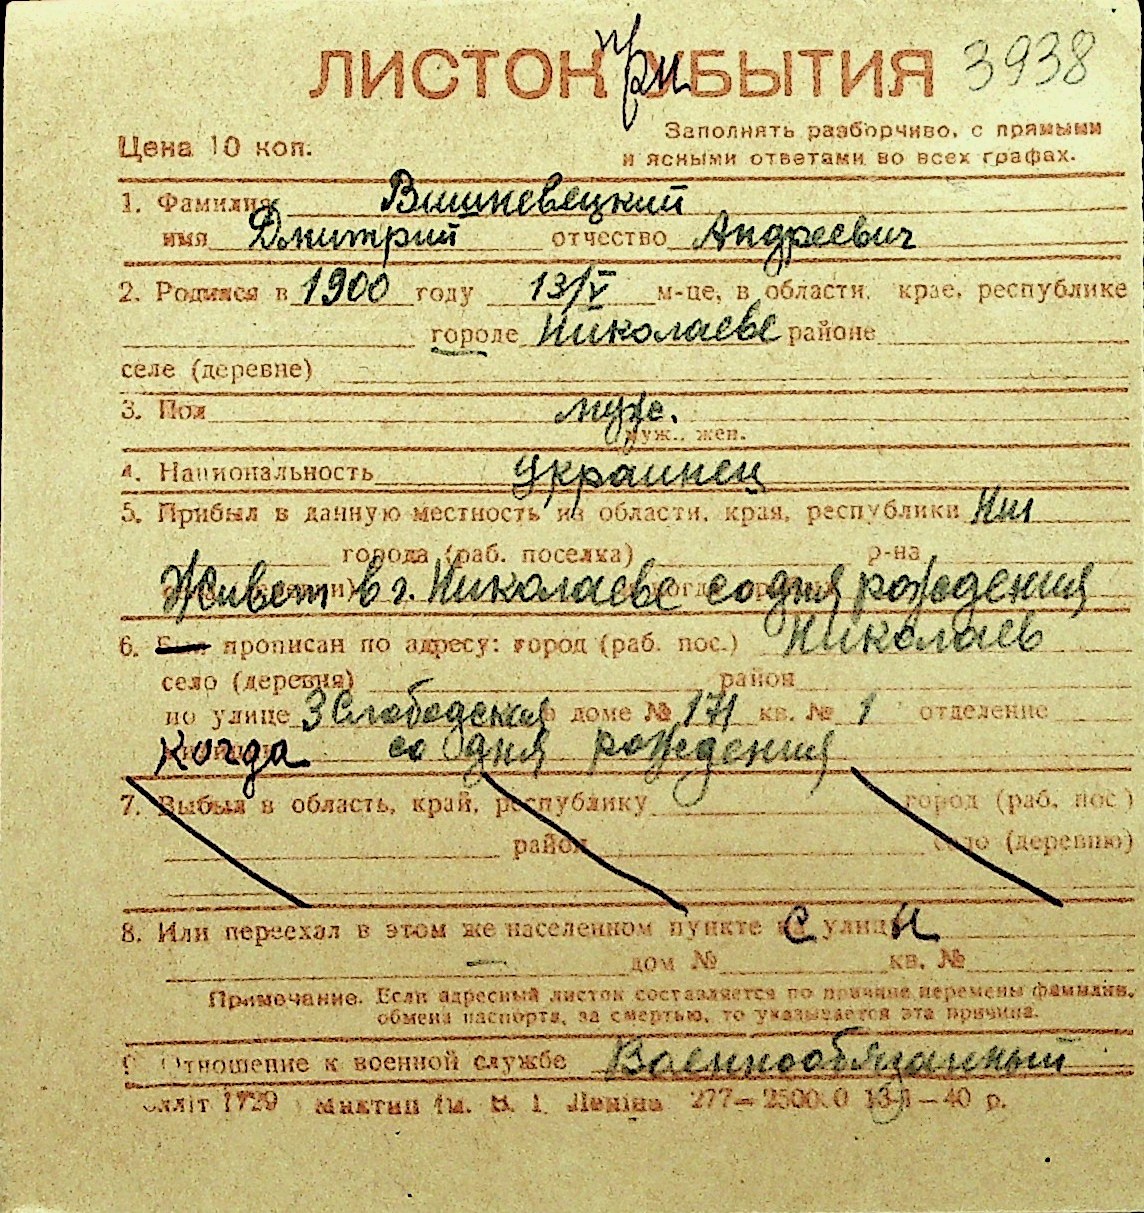 ЛИСТОК при УБЫТИЯ 3938
Цена 10 коп.
Заполнять разборчиво, с прямыми
и ясными ответами во всех графах.
1. Фамилия Вишневецкий
имя Дмитрий отчество Андреевич
2. Родился в 1900 году 13/V м-це, в области, крае, республике
городе Николаеве районе
селе (деревне)
3. Пол муж.
муж., жен.
4. Национальность украинец
5. Прибыл в данную местность из области, края, республики
города (раб. поселка) р-на
Живет в г. Николаеве со дня рождения
6. Был прописан по адресу: город (раб. пос.) Николаев
село (деревня) район
по улице 3 Слободская в доме № 171 кв. № 1 отделение
когда со дня рождения
7. Выбыл в область, край, республику город (раб. пос.)
район село (деревню)
8. Или переехал в этом же населенном пункте с улицы
— дом № кв. №
Примечание. Если адресный листок составляется по причине перемены фамилии,
обмена паспорта, за смертью, то указывается эта причина.
9. Отношение к военной службе Военнообязанный
1729 їм. В. І. Леніна 277— —40 р.